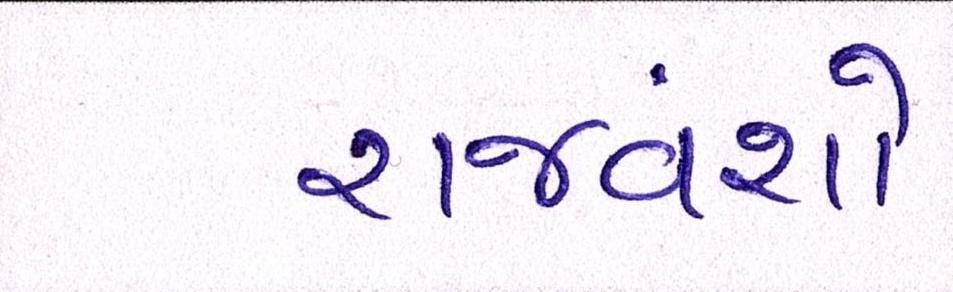 રાજવંશો